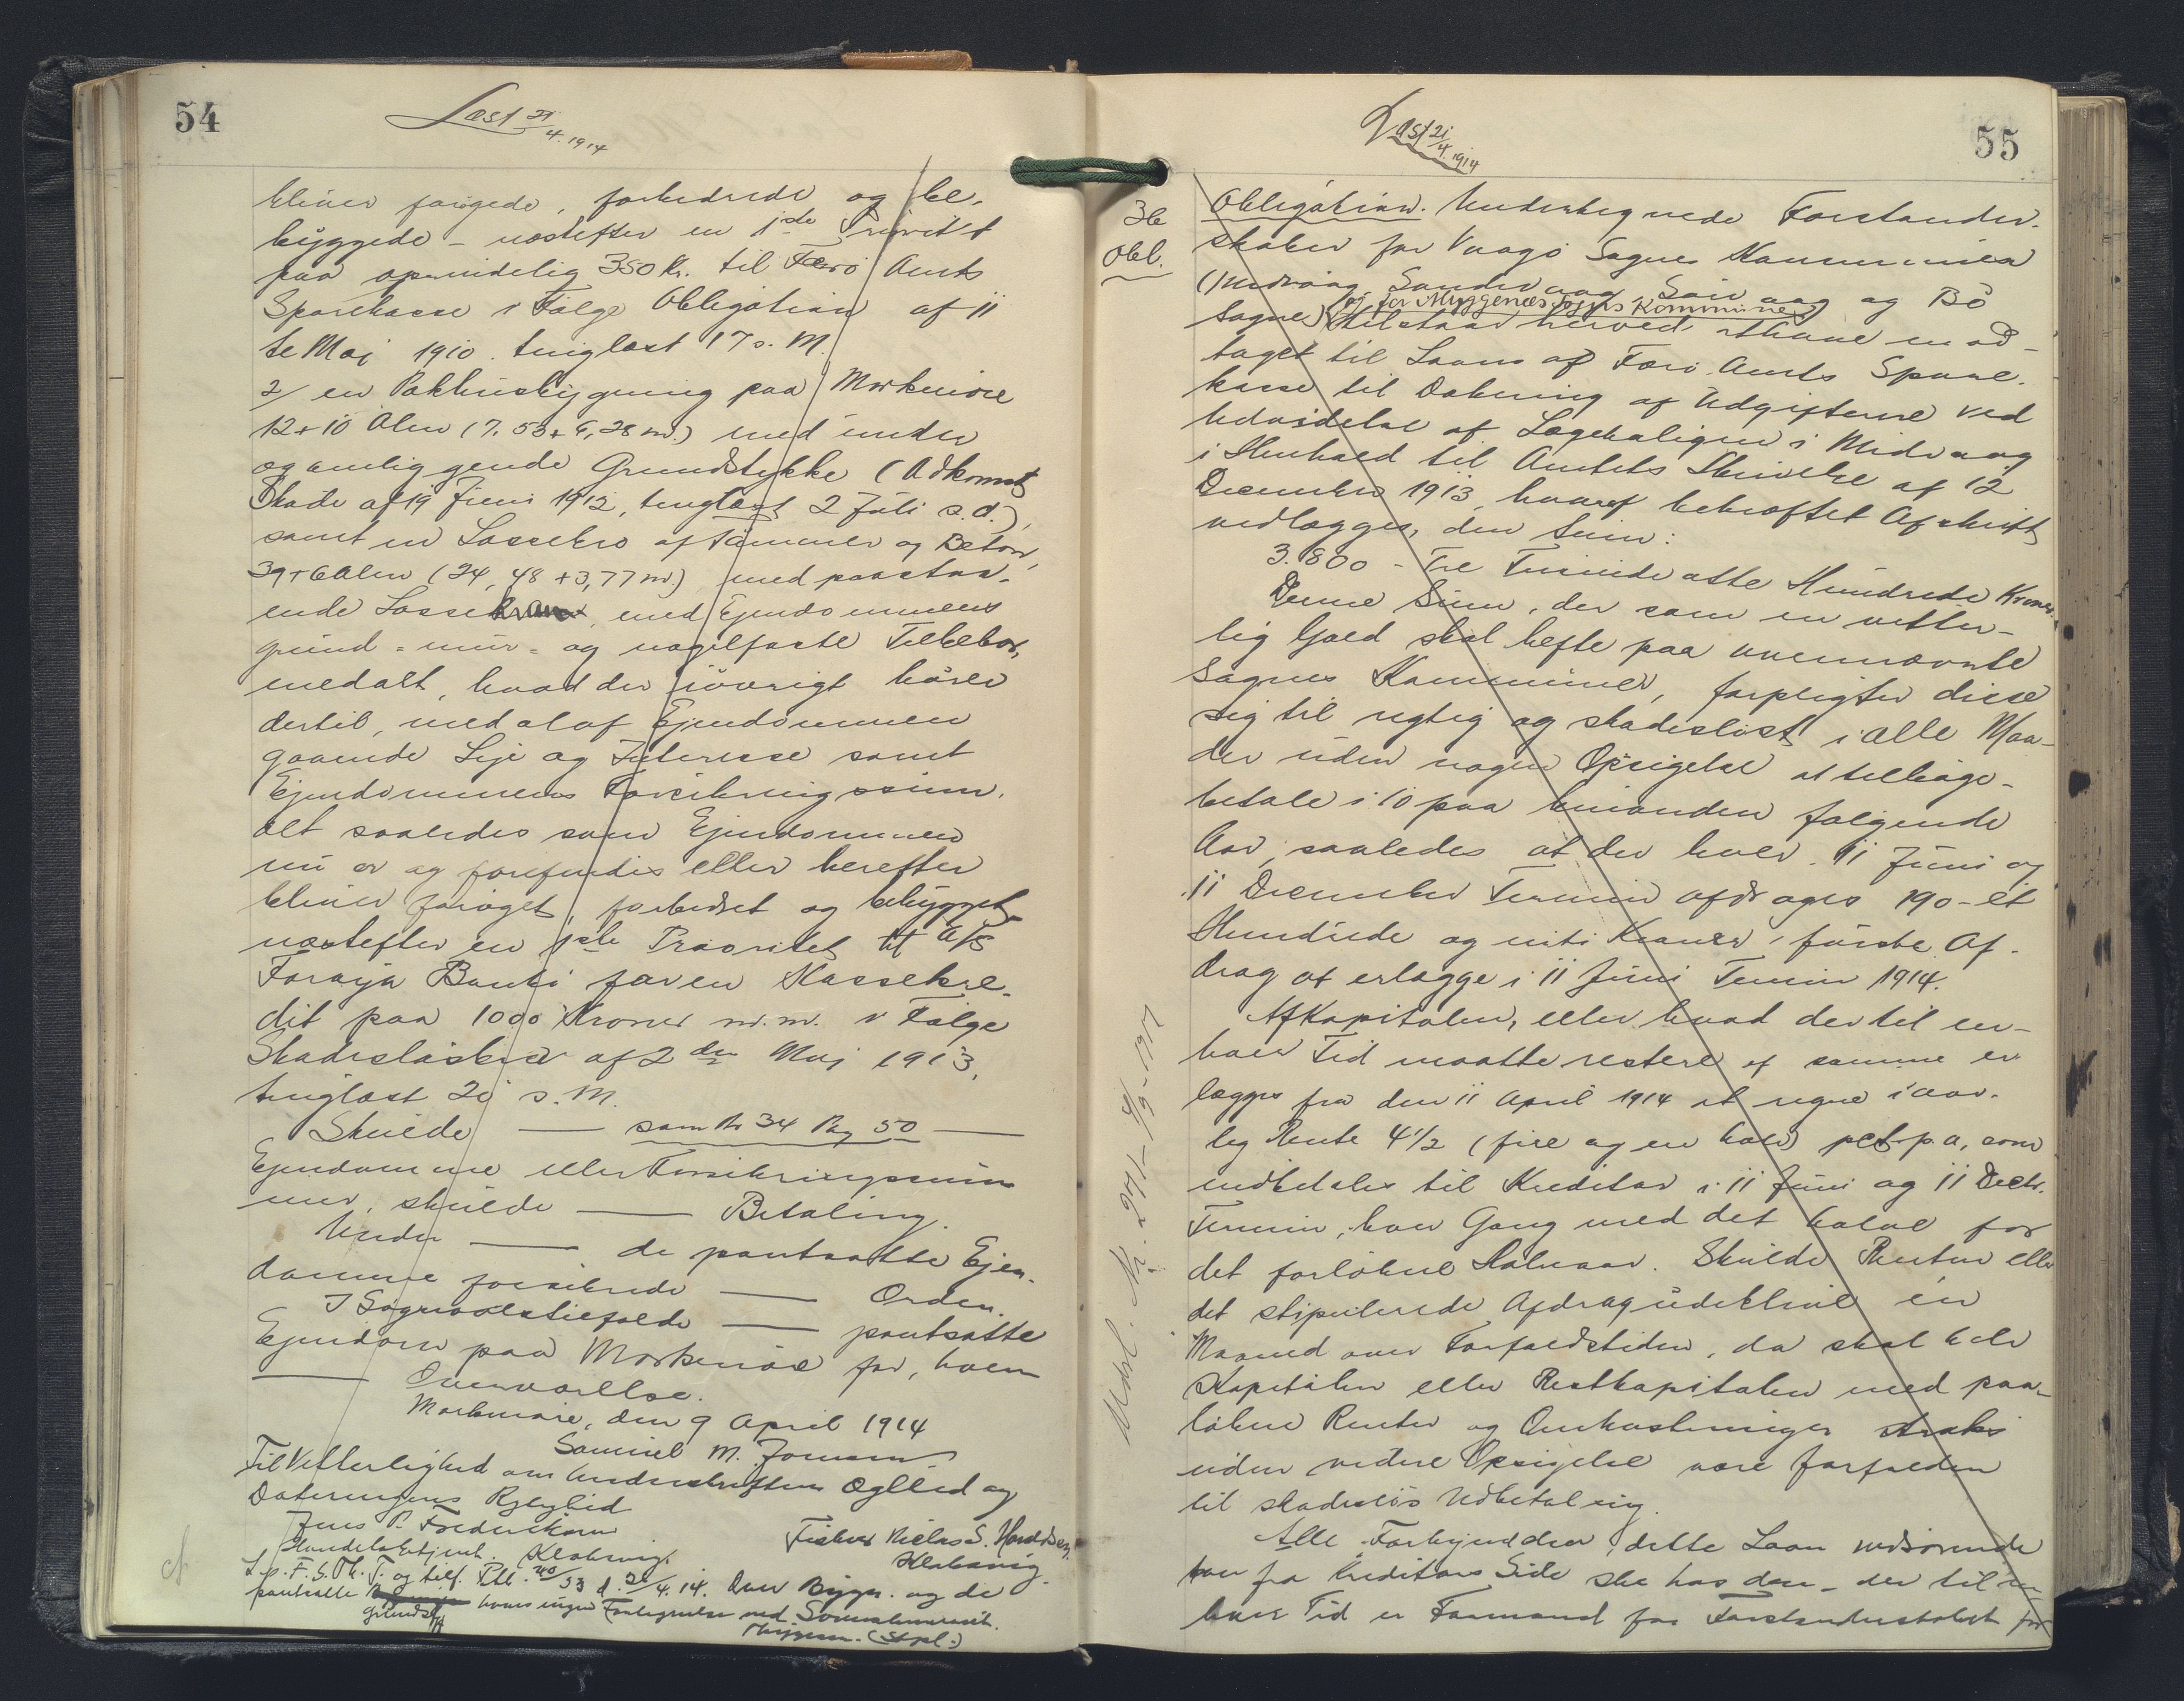 54
Læst 21/4. 1914
bliver forøgede, forbedrede og be-
byggede – næstefter en 1ste Priorit t
paa oprindelig 350 Kr. til Færø Amts
Sparekasse i Følge Obligation af 11
te Maj 1910. tinglæst 17 s. M.
2/ en Pakhusbygning paa Morkenøre
12 + 10 Alen (7,53 + 6,28 m.) med under
og omliggende Grundstykke (Adkomst
Skøde af 19 Juni 1912, tinglæst 2 Juli s. A.),
samt en Lossebro af Tømmer og Beton,
39 + 6 Alen (24,48 + 3,77 m.) med paastaa-
ende Lossekran, med Ejendommens
grund- mur- og nagelfaste Tilbehør,
med alt, hvad der iøvrigt hører
dertil, med al af Ejendommen
gaaende Leje og Interesse samt
Ejendommens Forsikringssum.
alt saaledes som Ejendommen
nu er og forefindes eller herefter
bliver forøget, forbedret og bebygget,
næstefter en 1ste Prioritet til A/S
Føroya Banki for en Kassekre-
dit paa 1000 Kroner m.m. i Følge
Skadesløsbrev af 2den Maj 1913,
tinglæst 20 s. M.
Skulde — som Nr 34 Pag 50 —
Ejendomme eller Forsikringssum
mer, skulde — Betaling.
Under — de pantsatte Ejen-
domme forsikrede — Orden.
I Søgsmaalstilfælde — pantsatte
Ejendom paa Morkenøre for, hvem
— Overværelse.
Morkenøre, den 9 April 1914
Samuel M. Joensen
Til Vitterlighed om Underskriftens Ægthed og
Dateringens Rigtighed
Jens P. Frederiksen
Handelsbetjent. Klaksvig.
Fisker Niclas S.
Klaksvig.
L.p. F. S. Th. T. og tilf. 20/4. 14. Over Bygn. og de
pantsatte
Grundst. haves ingen Forlegnelse ved Sorenskriveriet.
(Stpl.)
55
Læst 21/4. 1914
36
Obl.
Obligation. Undertegnede Forstander-
skaber for Vaagø Sogns Kommuner
(Midvaag, Sandevaag, Sørvaag og Bø
og for Myggenæs Sogns Kommune
Sogne) tilstaar herved at have mod-
taget til Laans af Færø Amts Spare-
kasse til Dækning af Udgifterne ved
Udvidelse af Lægeboligen i Midvaag
i Henhold til Amtets Skrivelse af 12
December 1913, hvoraf bekræftet Afskrift
vedlægges, den Sum:
3.800 – Tre Tusinde otte Hundrede Kroner.
Denne Sum, der som en vitter-
lig Gæld skal hefte paa ovennævnte
Sognes Kommuner, forpligter disse
sig til rigtig og skadesløst i alle Maa-
der uden nogen Opsigelse at tilbage-
betale i 10 paa hinanden følgende
Aar, saaledes at der hver 11 Juni og
11 December Termin afdrages 190 – et
Hundrede og niti Kroner, første Af-
drag at erlægge i 11 Juni Termin 1914.
Af Kapitalen, eller hvad der til en-
hver Tid maatte restere af samme er-
lægges fra den 11 April 1914 at regne i aar-
lig Rente 4½ (fire og en halv) pct. p. a., som
indbetales til Kreditor i 11 Juni og 11 Decbr.
Termin, hver Gang med det halve for
det forløbne Halvaar. Skulde Renten eller
det stipulerede Afdrag udeblive en
Maaned over Forfaldstiden, da skal hele
Kapitalen eller Restkapitalen med paa-
løbne Renter og Omkostninger straks
uden videre Opsigelse være forfalden
til skadesløs Udbetaling.
Alle Forkyndelser, dette Laan vedrørende
kan fra Kreditors Side ske hos den – der til en-
hver Tid er Formand for Forstanderskabet for
Udsl. Nr. 271 –